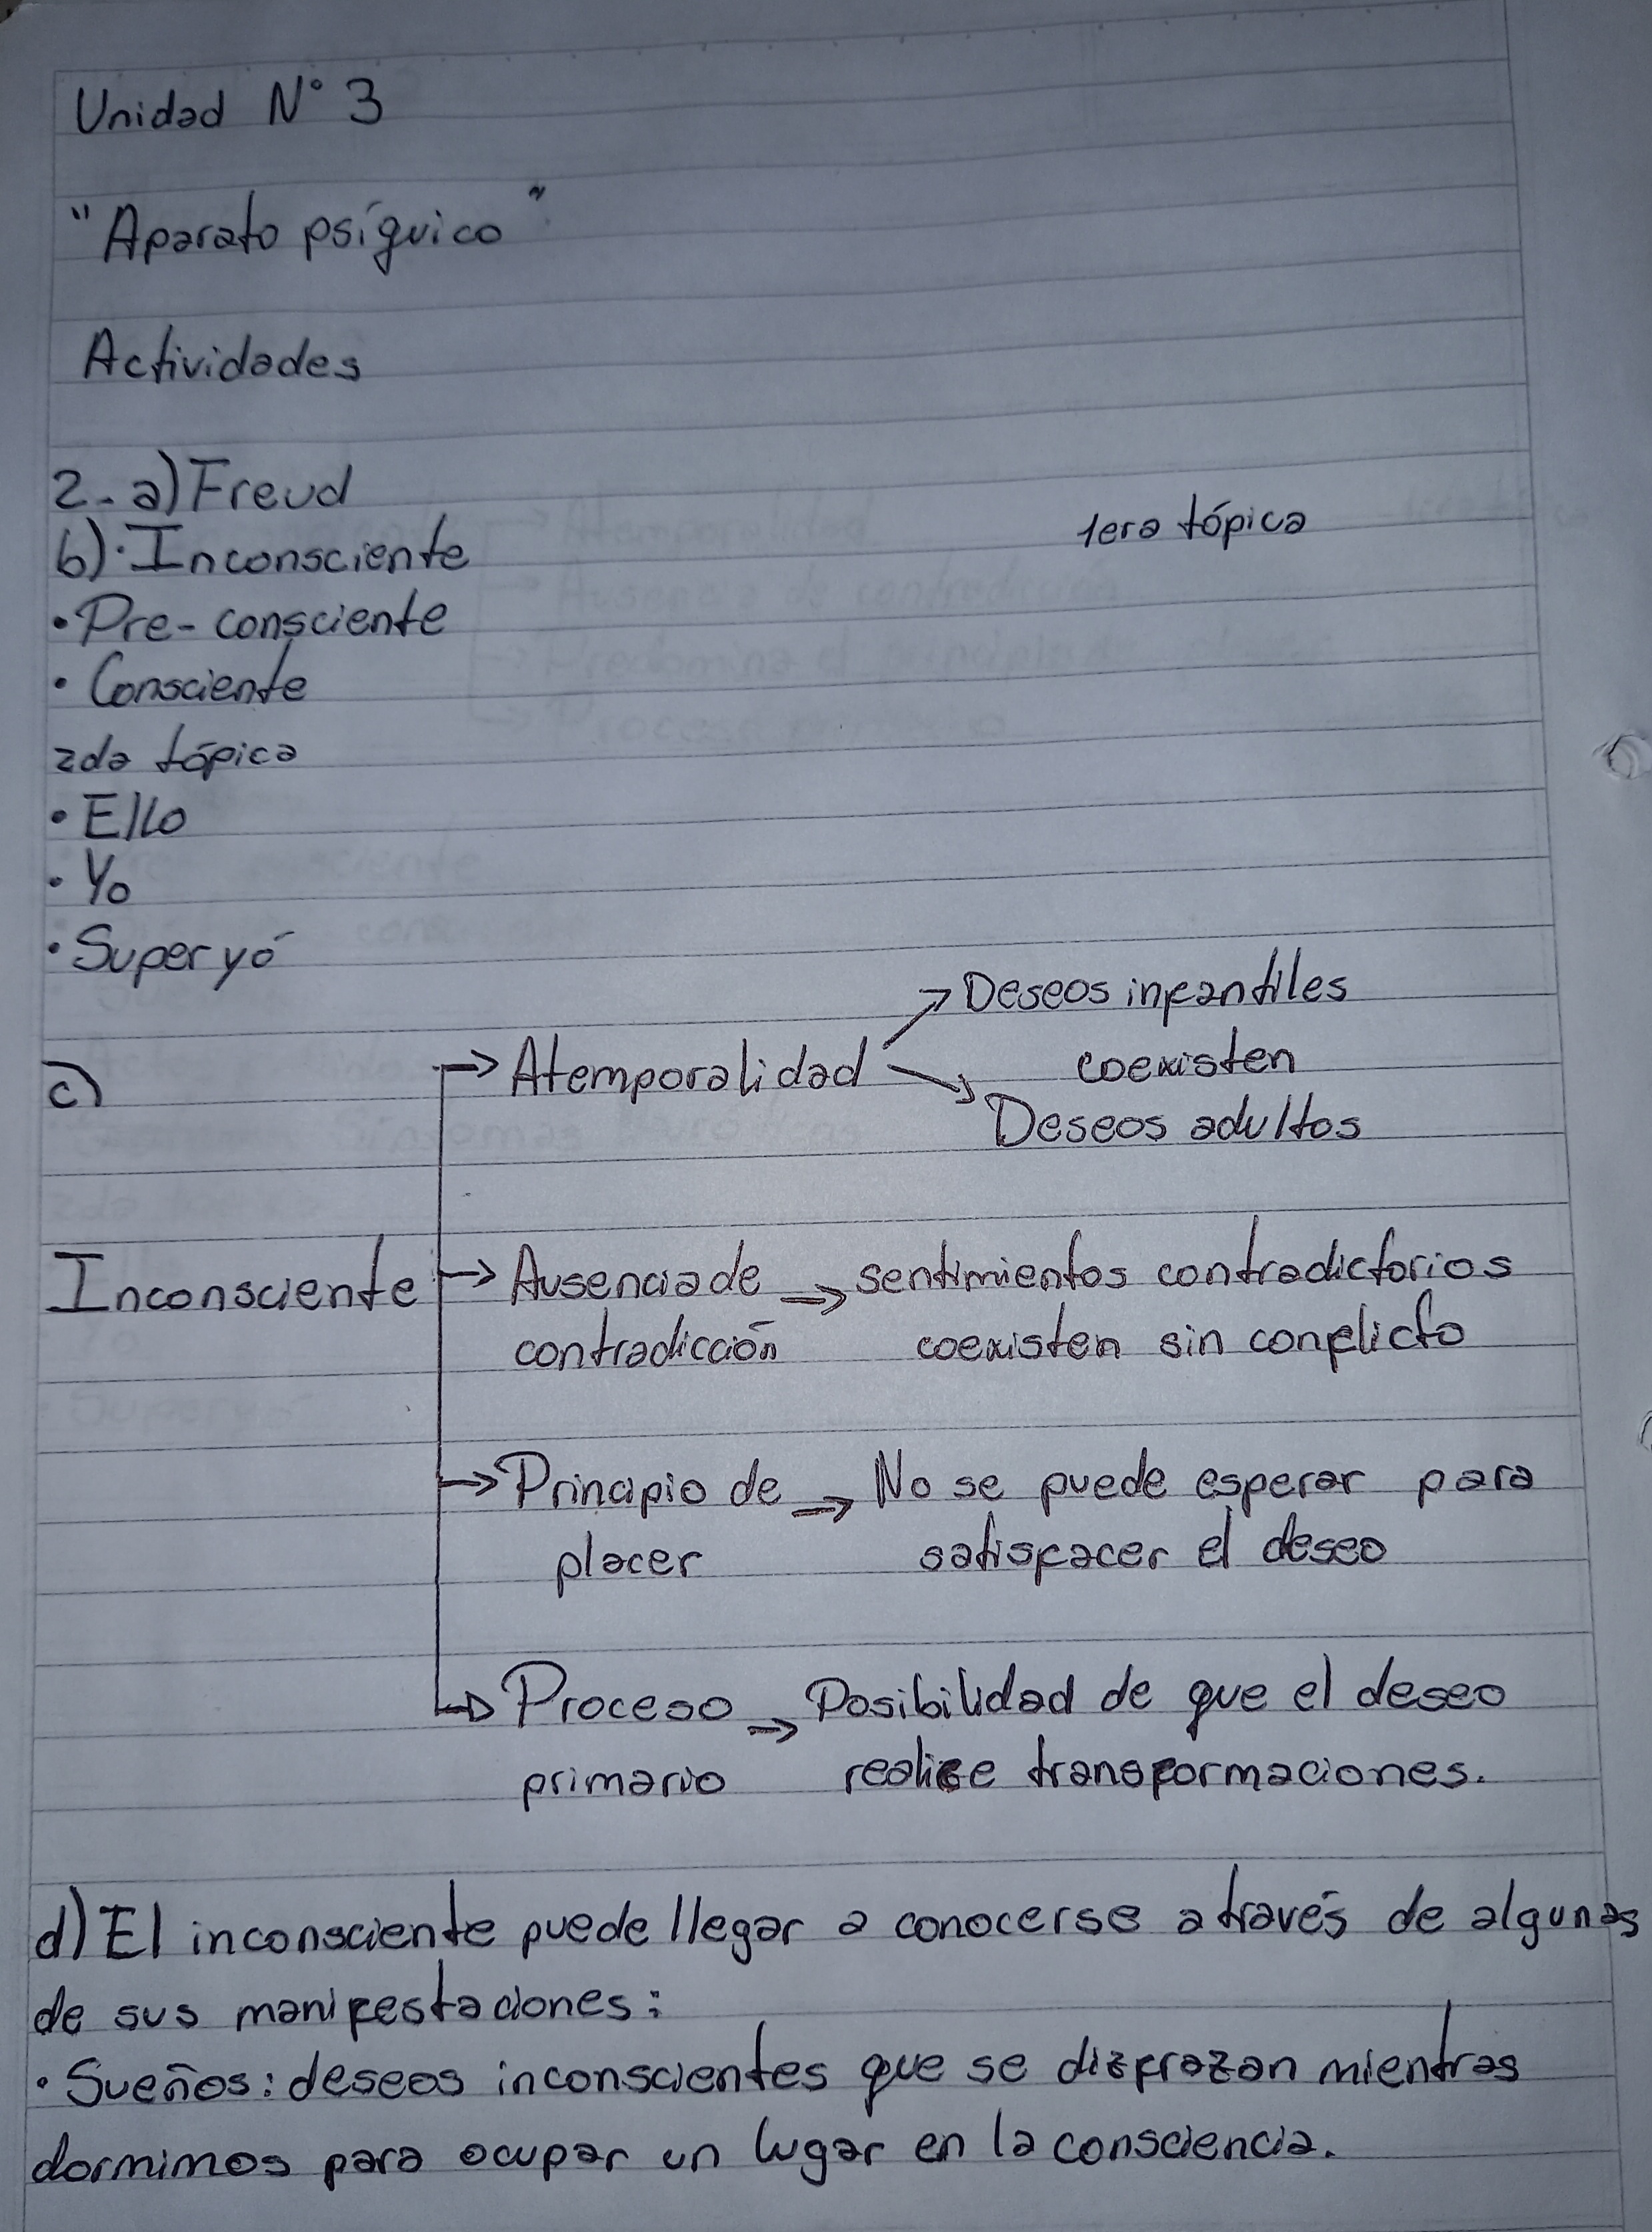 Unidad N° 3
"Aparato psíquico"
Actividades
2-a) Freud
1era tópica
b)·Inconsciente
•Pre-consciente
• Consciente
2da tópica
• Ello
• Yo
•Superyó
c)
Inconsciente
→ Atemporalidad
↗ Deseos infantiles
coexisten
↘ Deseos adultos
→ Ausencia de → sentimientos contradictorios
contradicción coexisten sin conflicto
→ Principio de → No se puede esperar para
placer satisfacer el deseo
→ Proceso → Posibilidad de que el deseo
primario realice transformaciones.
d) El inconsciente puede llegar a conocerse através de algunas
de sus manifestaciones:
• Sueños: deseos inconscientes que se disfrazan mientras
dormimos para ocupar un lugar en la consciencia.